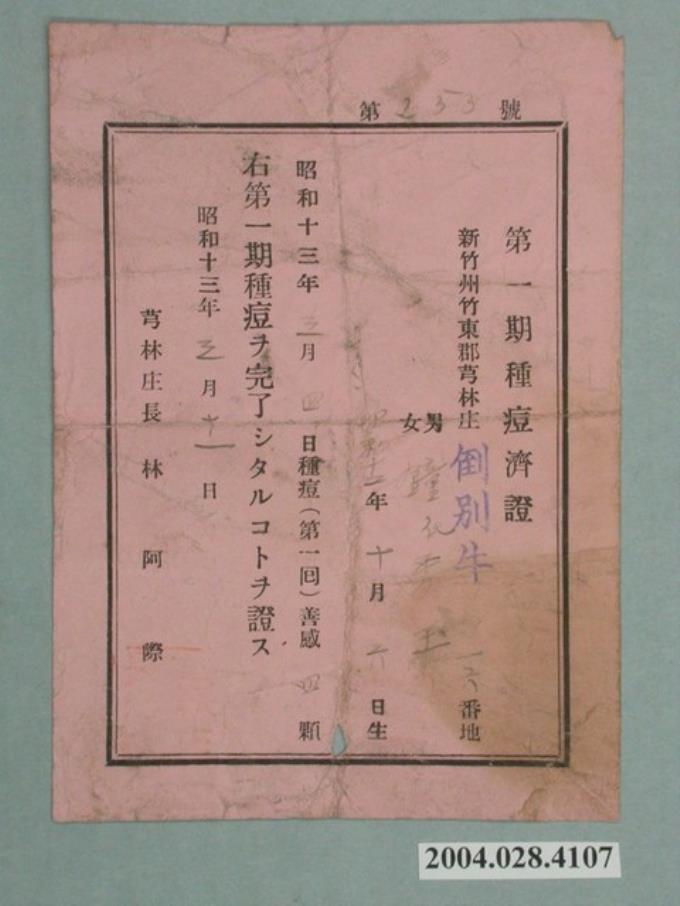 第 253 號
第一期種痘濟證
新竹州竹東郡芎林庄 倒別牛 一六番地
男
女
鐘 玉
昭和十二年十月六日生
昭和十三年三月四日種痘(第一囘)善感四顆
右第一期種痘ヲ完了シタルコトヲ證ス
昭和十三年三月十一日
芎林庄長 林阿際
2004.028.4107